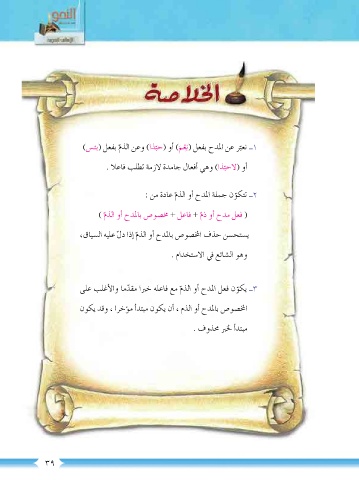 النحو
الخلاصة
١ـ نعبّر عن المدح بفعل (نِعْمَ) أو (حبّذا) وعن الذمّ بفعل (بئس)
أو (لاحبّذا) وهي أفعال جامدة لازمة تطلب فاعلا .
٢ـ تتكوّن جملة المدح أو الذمّ عادة من :
( فعل مدح أو ذمّ + فاعل + مخصوص بالمدح أو الذمّ )
يستحسن حذف المخصوص بالمدح أو الذمّ إذا دلّ عليه السياق،
وهو الشائع في الاستخدام .
٣ـ يكوّن فعل المدح أو الذمّ مع فاعله خبرا مقدّما والأغلب على
المخصوص بالمدح أو الذم ، أن يكون مبتدأ مؤخرا ، وقد يكون
مبتدأ لخبر محذوف .
٣٩